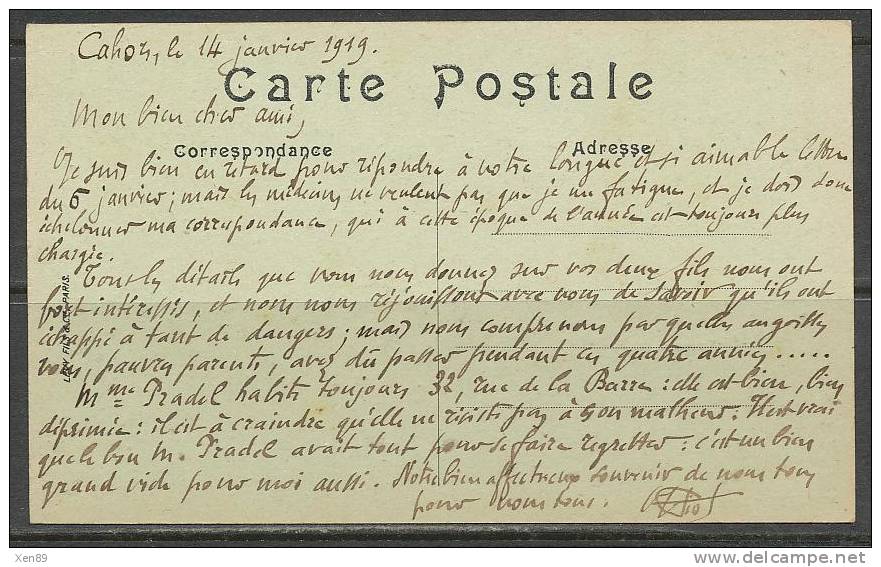 Cahors, le 14 janvier 1919.
Carte Postale
Mon bien cher ami,
Correspondance
Adresse
Je suis bien en retard pour répondre à votre longue et si aimable lettre
du 6 janvier ; mais les médecins ne veulent pas que je me fatigue, et je dois donc
échelonner ma correspondance, qui à cette époque de l'année est toujours plus
chargée.
Tous les détails que vous nous donnez sur vos deux fils nous ont
fort intéressés, et nous nous réjouissons avec vous de savoir qu'ils ont
échappé à tant de dangers ; mais nous comprenons par quelles angoisses
vous, pauvres parents, avez dû passer pendant ces quatre années.....
Mme Pradel habite toujours 32, rue de la Barre : elle est bien, bien
déprimée : il est à craindre qu'elle ne résiste pas à son malheur. Il est vrai
que le bon M. Pradel avait tout pour se faire regretter : c'est un bien
grand vide pour moi aussi. Notre bien affectueux souvenir de nous tous
pour vous tous.
LEVY FILS & Cie PARIS.
Xen89
delcampe.net